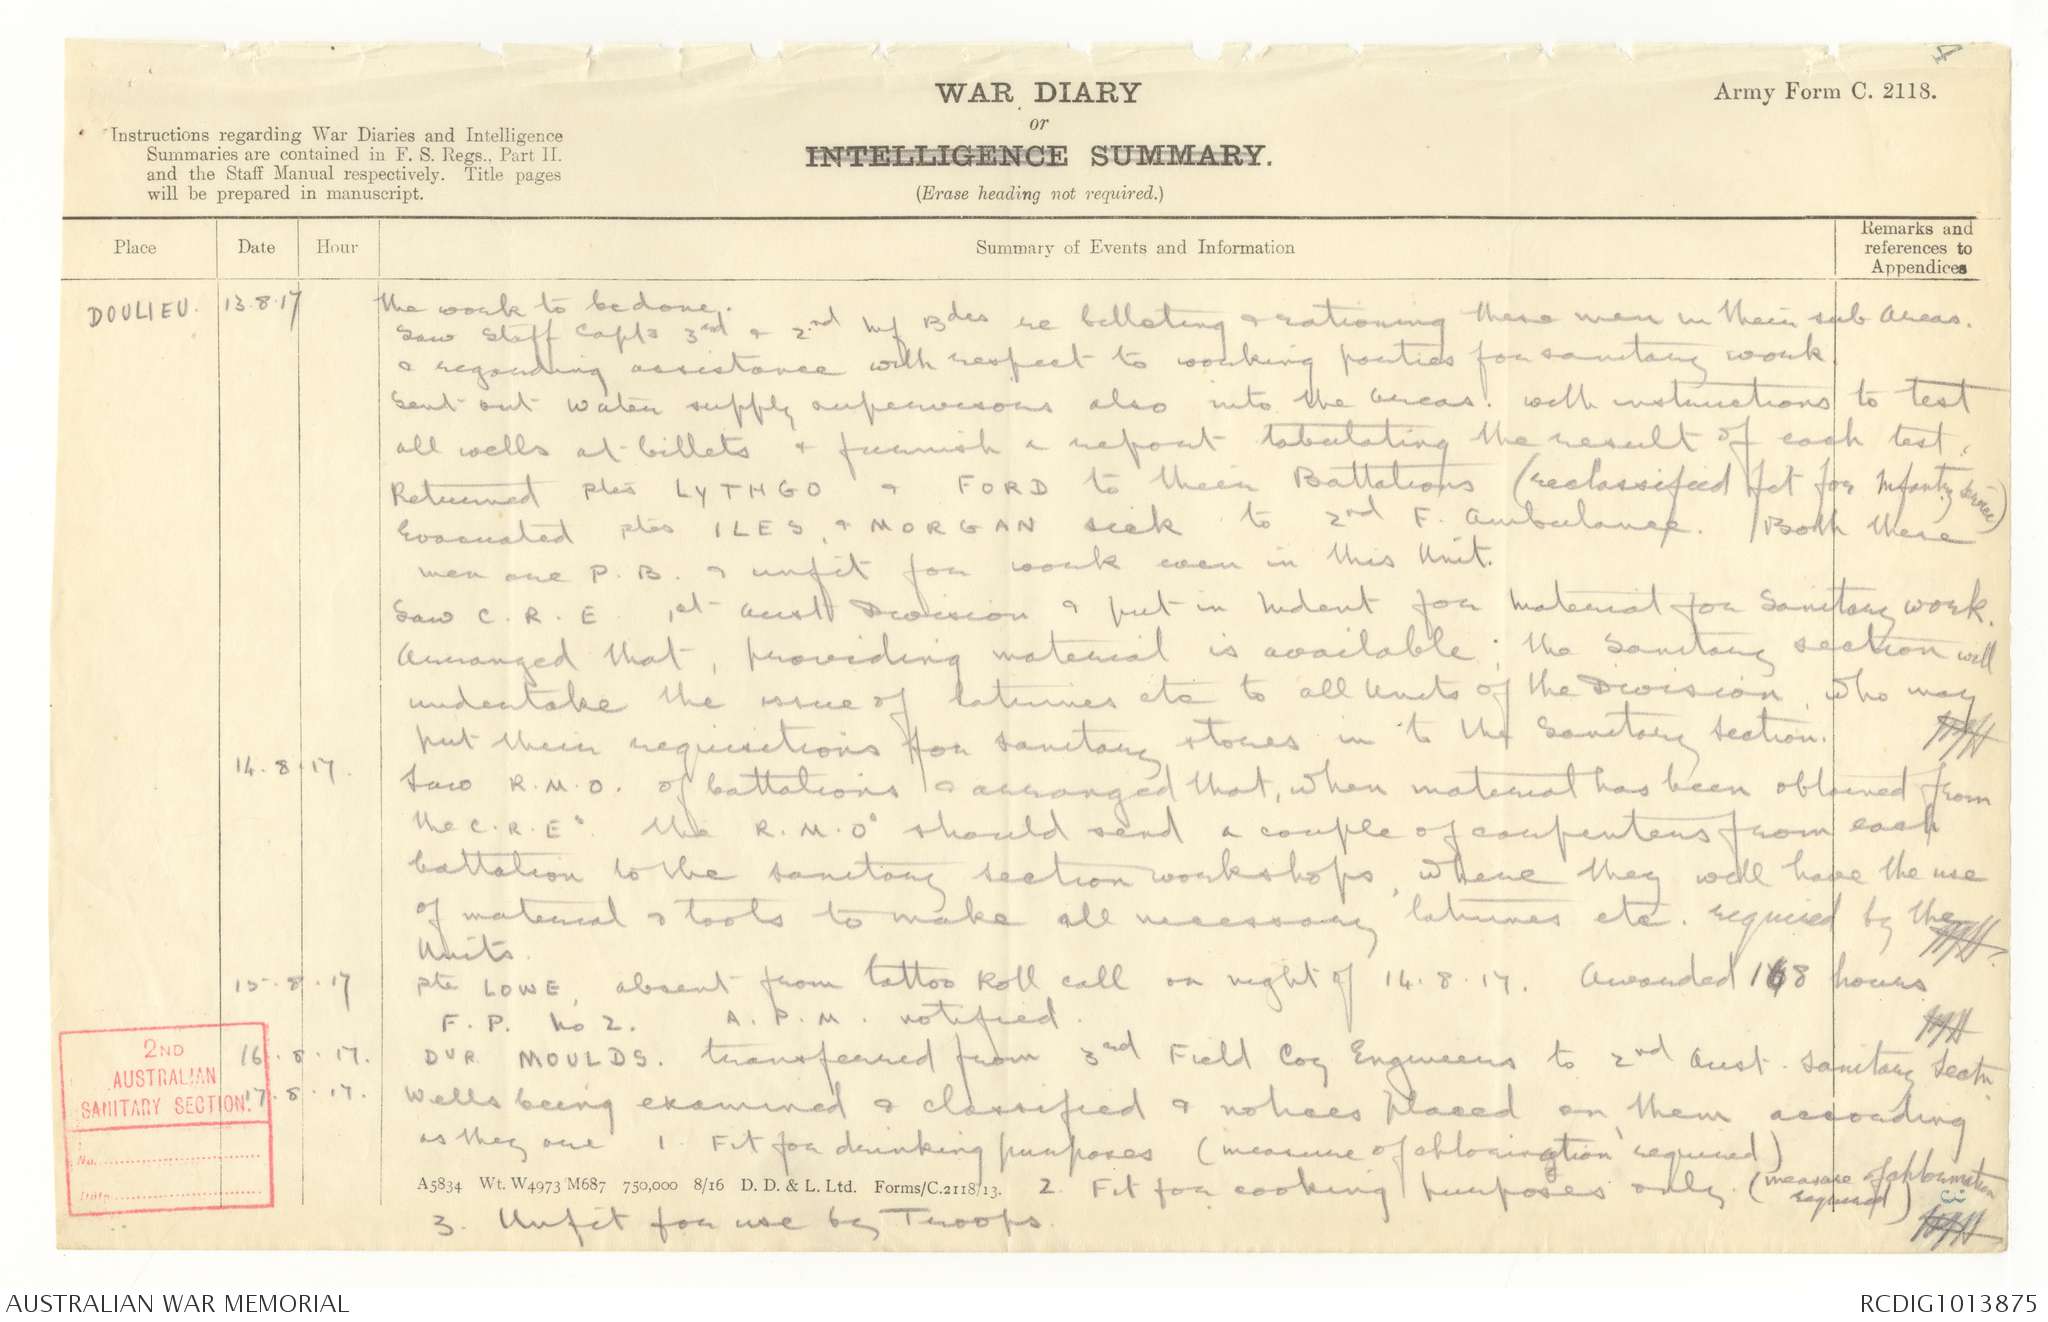 WAR DIARY
or
INTELLIGENCE SUMMARY.
(Erase heading not required.)
Army Form C. 2118.
Instructions regarding War Diaries and Intelligence
Summaries are contained in F. S. Regs., Part II.
and the Staff Manual respectively. Title pages
will be prepared in manuscript.
Place
Date
Hour
Summary of Events and Information
Remarks and
references to
Appendices
DOULIEU. 13.8.17 the work to be done.
Saw Staff Capts 3rd & 2nd Inf Bdes re billeting & rationing these men in their sub areas.
& regarding assistance with respect to working parties for sanitary work.
Sent out water supply supervisors also into the areas. with instructions to test
all wells at billets & furnish a report tabulating the result of each test.
Returned ptes LYTHGO & FORD to their Battalions (reclassified fit for Infantry Service)
Evacuated ptes ILES, & MORGAN sick to 2nd F. Ambulance. Both these
men are P. B. & unfit for work even in this Unit.
Saw C. R. E. 1st Aust Division & put in indent for material for Sanitary work.
Arranged that, providing material is available, the Sanitary section will
undertake the issue of latrines etc to all Units of the Division, who may
put their requisitions for sanitary stores in to the Sanitary section.
14.8.17. Saw R.M.O. of battalions & arranged that, when material has been obtained from
the C.R.Es. the R.M.Os should send a couple of carpenters from each
battalion to the sanitary section workshops, where they will have the use
of material & tools to make all necessary latrines etc. required by the
Units.
15.8.17 pte LOWE, absent from tattoo Roll call on night of 14.8.17. Awarded 168 hours
F. P. No 2. A. P. M. notified.
16.8.17. DVR MOULDS. transferred from 3rd Field Coy Engineers to 2nd Aust. Sanitary Sectn
17.8.17. Wells being examined & classified & notices placed on them according
as they are 1. Fit for drinking purposes (measure of chlorination required)
A5834 Wt. W4973/M687 750,000 8/16 D. D. & L. Ltd. Forms/C.2118/13.
2. Fit for cooking purposes only. (measure of chlorination
required)
3. Unfit for use by Troops.
2ND
AUSTRALIAN
SANITARY SECTION.
No.
Date
AUSTRALIAN WAR MEMORIAL
RCDIG1013875